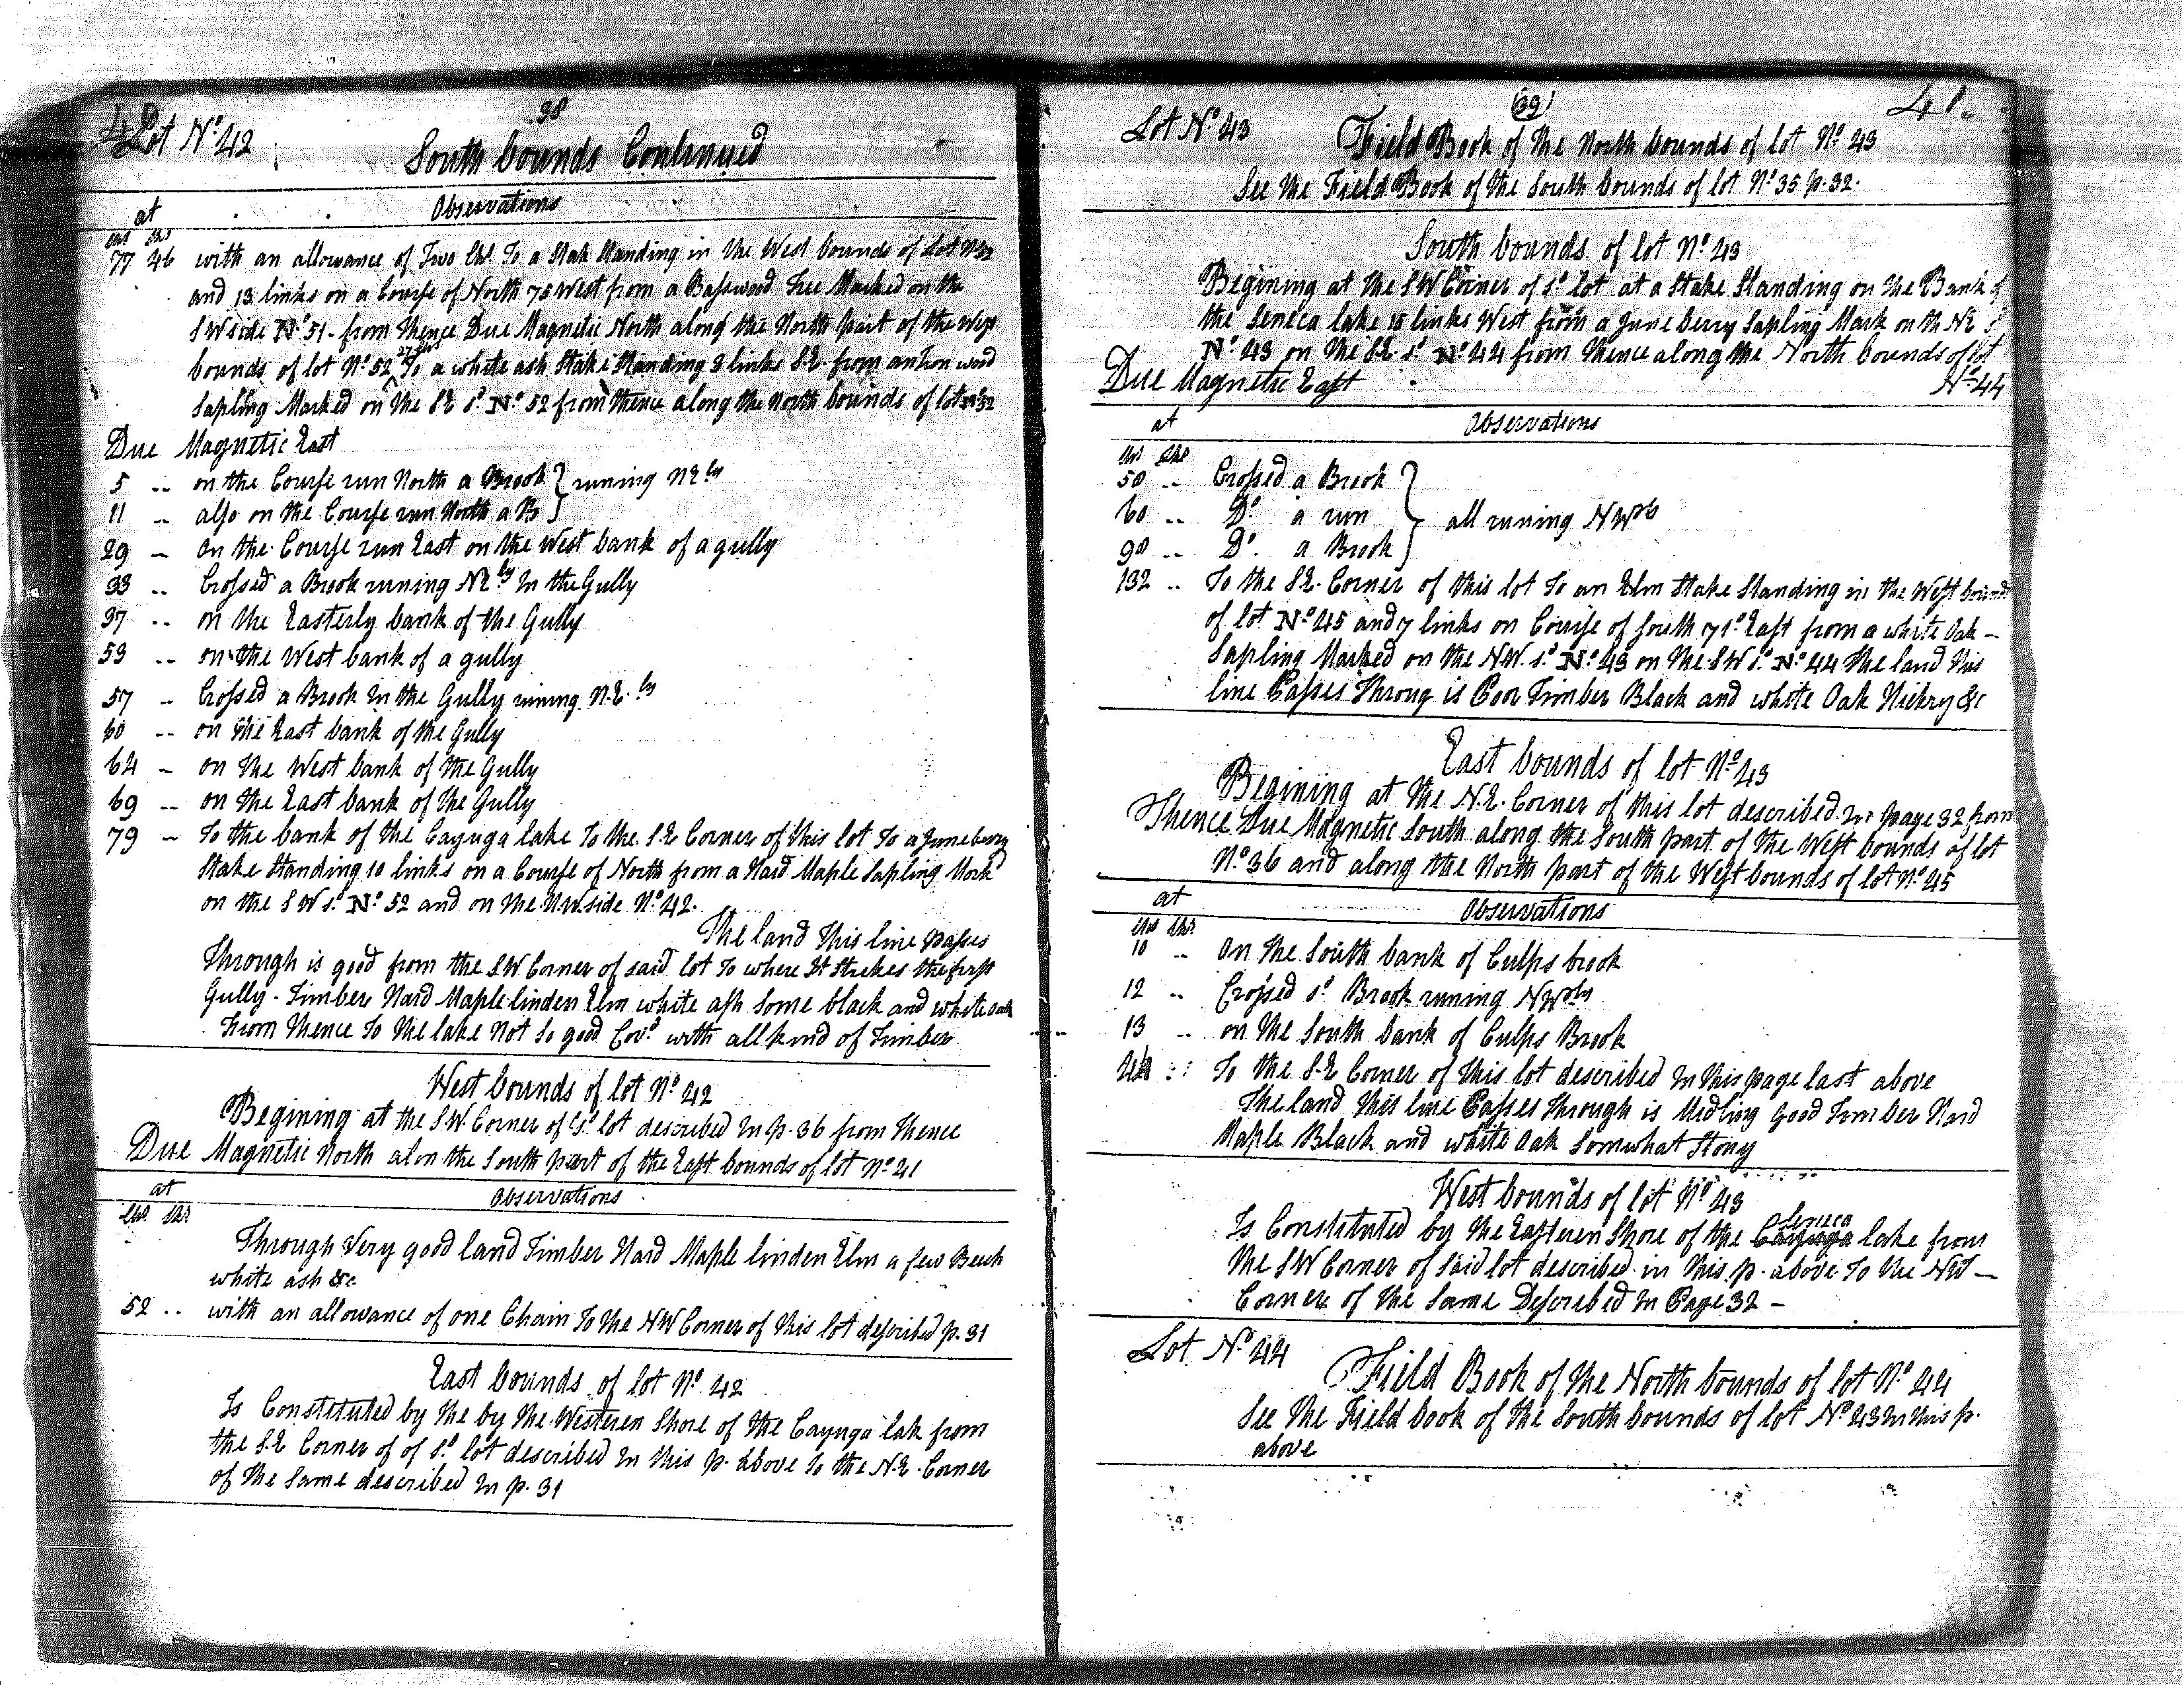 38
Lot Nº 42
South bounds Continued
at Observations
Chs Lks
77 46 with an allowance of Two Chs To a Stak Standing in the West bounds of Lot Nº 52
and 13 links on a Course of North 75 West from a Basswood Tree Marked on the
SW side Nº 51 - from thence Due Magnetic North along the North part of the West
bounds of lot Nº 52 To a white ash Stake Standing 3 links SE from an Iron wood
Sapling Marked on the SE sd Nº 52 from thence along the North bounds of lot Nº 52
Due Magnetic East
5 .. on the Course run North a Brook } runing NEly
11 .. also on the Course run North a B }
29 - on the Course run East on the West bank of a gully
33 .. Crossed a Brook runing NEly In the Gully
37 .. on the Easterly bank of the Gully
53 .. on the West bank of a gully
57 - Crossed a Brook In the Gully runing N.E.ly
60 .. on the East bank of the Gully
64 - on the West bank of the Gully
69 .. on the East bank of the Gully
79 - To the bank of the Cayuga lake To the S.E Corner of this lot To a Juneberry
Stake Standing 10 links on a Course of North from a Hard Maple Sapling Mark
on the SW sd Nº 52 and on the N.W. side Nº 42.
The land this line passes
Through is good from the SW Corner of said lot To where It Strekes the first
Gully - Timber Hard Maple linden Elm white ash Some black and white oak
From thence To the lake Not So good Covd with all kind of Timber
West bounds of lot Nº 42
Begining at the S.W. Corner of sd lot described In p. 36 from thence
Due Magnetic North alon the South part of the East bounds of lot Nº 41
at Observations
Chs Lks
Through Very good land Timber Hard Maple linden Elm a few Beech
white ash &c
52 .. with an allowance of one Chain To the NW Corner of this lot described p. 31
East bounds of lot Nº 42
Is Constituted by the by the Westeren Shore of the Cayuga lak from
the S.E Corner of of sd lot described In this p. above To the N.E. Corner
of the Same described In p. 31
(39) 41.
Lot Nº 43
Field Book of the North bounds of lot Nº 43
See the Field Book of the South bounds of lot Nº 35 p. 32.
South bounds of lot Nº 43
Begining at the SW Corner of sd lot at a Stake Standing on the Bank of
the Seneca lake 15 links West from a June berry Sapling Mark on th NE sd
Nº 43 on the SE sd Nº 44 from thence along the North bounds of lot
Due Magnetic East Nº 44
at Observations
Chs Lks
50 .. Crossed a Brook }
60 .. Dº a run } all runing NWly
98 .. Dº. a Brook }
132 .. To the S.E. Corner of this lot To an Elm Stake Standing in the West bound
of lot Nº 45 and 7 links on Course of South 71º East from a white Oak -
Sapling Marked on the N.W. sd Nº 43 on the SW sd Nº 44 The land this
line Passes Throug is Poor Timber Black and white Oak Hickry &c
East bounds of lot Nº 43
Begining at the N.E. Corner of this lot described In page 32 from
Thence Due Magnetic South along the South part of the West bounds of lot
Nº 36 and along the North part of the West bounds of lot Nº 45
at Observations
Chs Lks
10 .. On the South bank of Culps brook
12 .. Crossed sd Brook runing NWly
13 .. on the South bank of Culps Brook
44 .. To the S.E Corner of this lot described In this page last above
The land this line Passes through is Midling Good Timber Hard
Maple Black and white Oak Somwhat Stony
West bounds of lot Nº 43
Seneca
Is Constituted by the Easteren Shore of the Cayuga lake from
the SW Corner of Said lot described in this p. above To the NW -
Corner of the Same Described In Page 32 -
Lot Nº 44
Field Book of the North bounds of lot Nº 44
See the Field book of the South bounds of lot Nº 43 In this p.
above